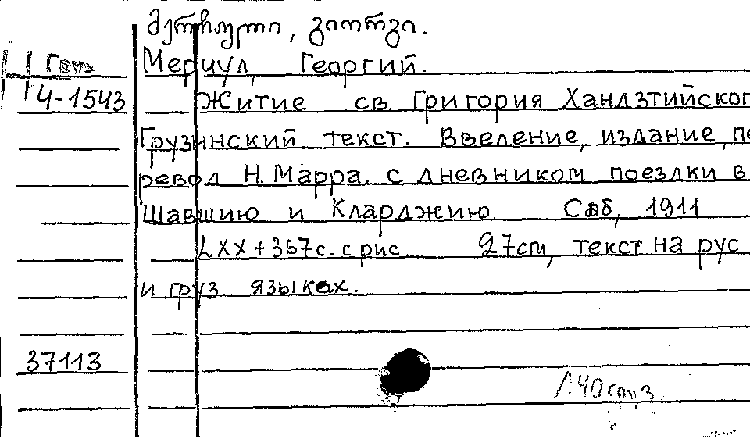 მერჩული, გიორგი.
Груз Мерчул, Георгий.
4-1543 Житие св Григория Хандзтийског
Грузинский текст. Введение, издание, пе
ревод Н. Марра. с дневником поездки в
Шавшию и Кларджию Спб, 1911
LXX+367с. с рис 27cm, текст на рус
и груз языках.
37113